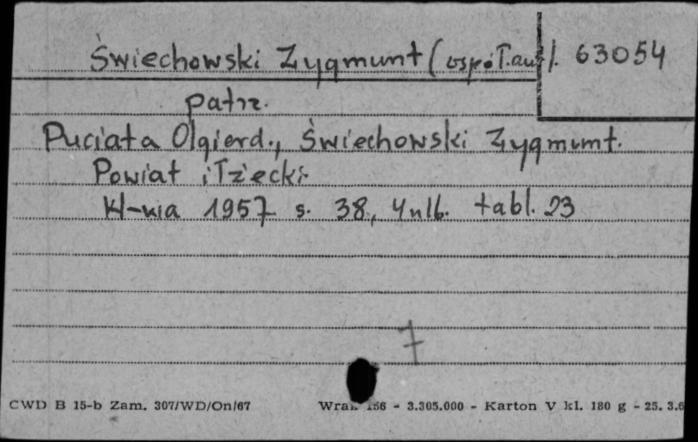 Świechowski Zygmunt (współ.aut). 63054
patrz.
Puciata Olgierd., Świechowski Zygmunt.
Powiat iłżecki.
W-wa 1957 s. 38, 4nlb. tabl. 23
7
CWD B 15-b Zam. 307/WD/On/67 156 - 3.305.000 - Karton V kl. 180 g - 25. 3.6